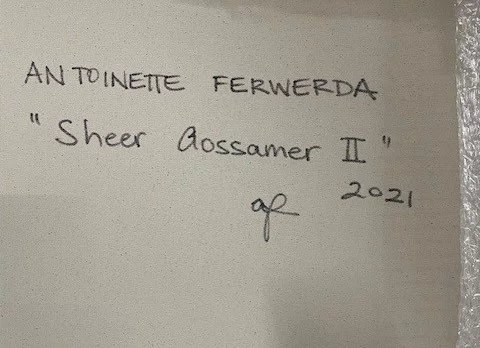 ANTOINETTE FERWERDA
"Sheer Gossamer II"
2021
af